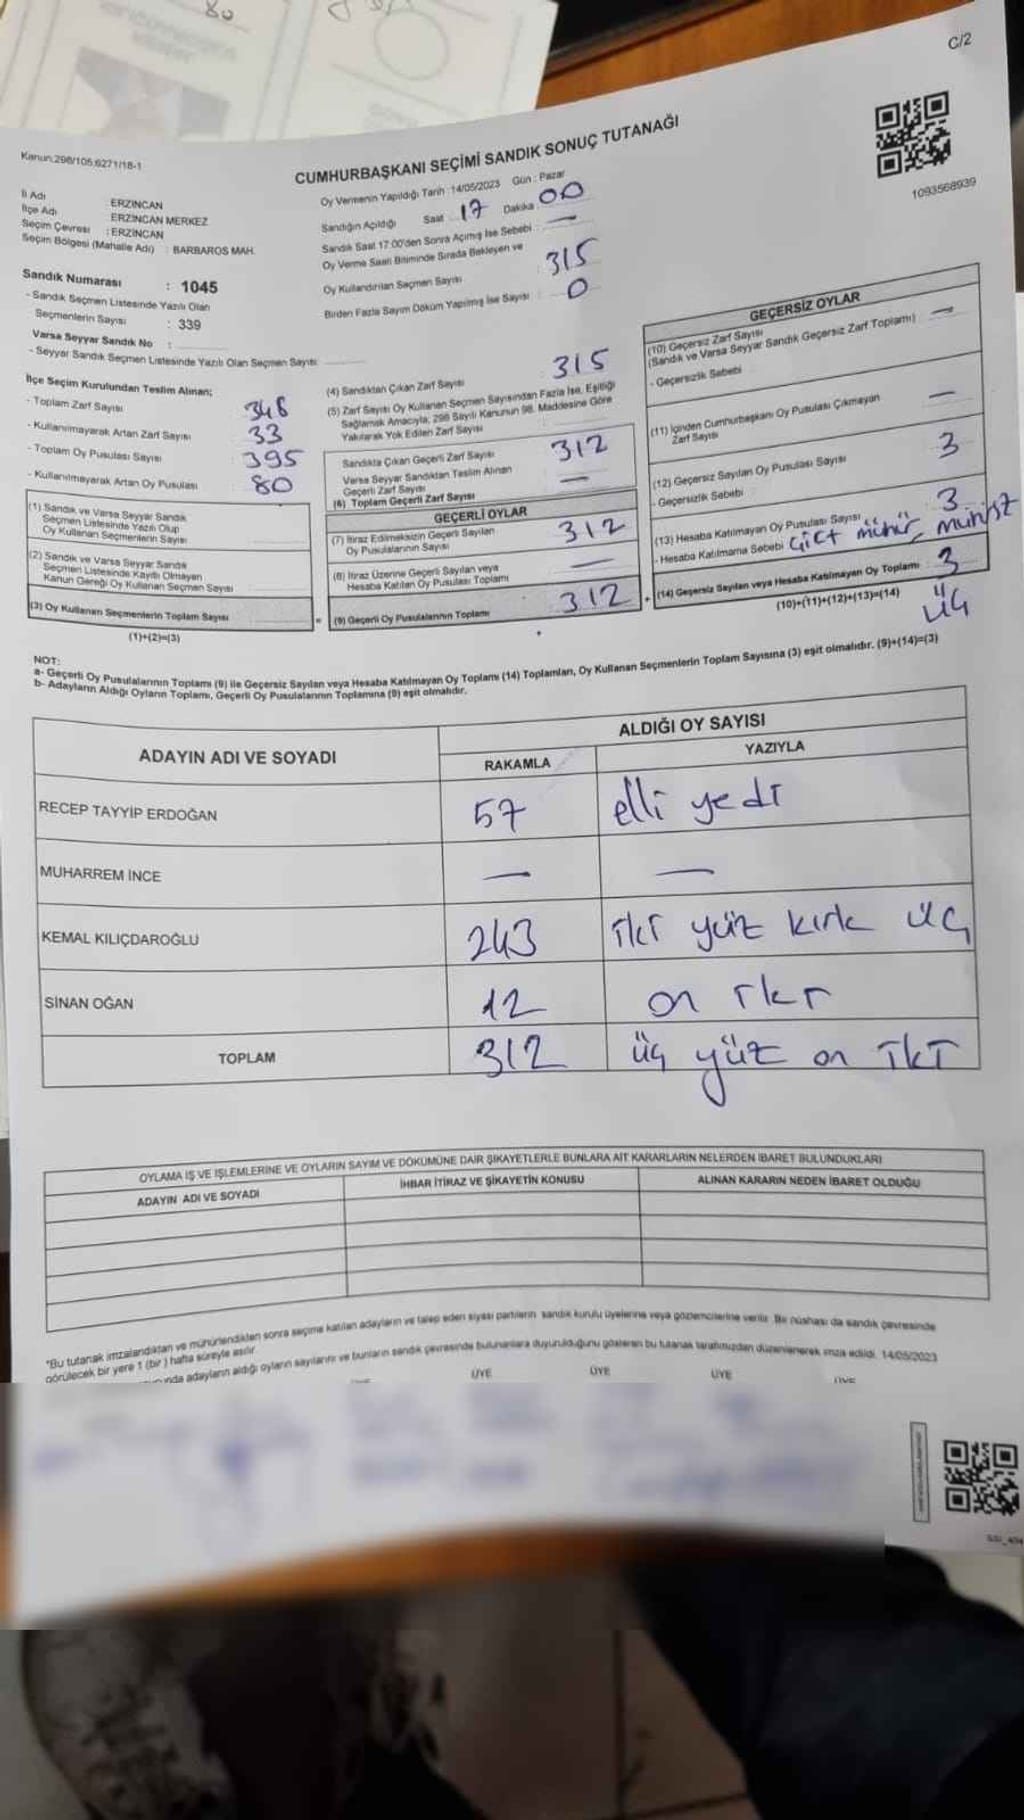 80
C/2
Kanun:298/105,6271/18-1
CUMHURBAŞKANI SEÇİMİ SANDIK SONUÇ TUTANAĞI
1093568939
İl Adı : ERZİNCAN
İlçe Adı : ERZİNCAN MERKEZ
Seçim Çevresi : ERZİNCAN
Seçim Bölgesi (Mahalle Adı) : BARBAROS MAH.
Sandık Numarası : 1045
- Sandık Seçmen Listesinde Yazılı Olan
Seçmenlerin Sayısı : 339
Varsa Seyyar Sandık No :
- Seyyar Sandık Seçmen Listesinde Yazılı Olan Seçmen Sayısı:
Oy Vermenin Yapıldığı Tarih :14/05/2023 Gün : Pazar
Sandığın Açıldığı Saat 17 Dakika 00
Sandık Saat 17:00'den Sonra Açımış İse Sebebi : —
Oy Verme Saati Bitiminde Sırada Bekleyen ve
Oy Kullandırılan Seçmen Sayısı : 315
Birden Fazla Sayım Döküm Yapılmış İse Sayısı : 0
İlçe Seçim Kurulundan Teslim Alınan;
- Toplam Zarf Sayısı : 348
- Kullanılmayarak Artan Zarf Sayısı : 33
- Toplam Oy Pusulası Sayısı : 395
- Kullanılmayarak Artan Oy Pusulası : 80
(1) Sandık ve Varsa Seyyar Sandık
Seçmen Listesinde Yazılı Olup
Oy Kullanan Seçmenlerin Sayısı
(2) Sandık ve Varsa Seyyar Sandık
Seçmen Listesinde Kayıtlı Olmayan
Kanun Gereği Oy Kullanan Seçmen Sayısı
(3) Oy Kullanan Seçmenlerin Toplam Sayısı
(1)+(2)=(3)
(4) Sandıktan Çıkan Zarf Sayısı : 315
(5) Zarf Sayısı Oy Kullanan Seçmen Sayısından Fazla İse, Eşitliği
Sağlamak Amacıyla, 298 Sayılı Kanunun 98. Maddesine Göre
Yakılarak Yok Edilen Zarf Sayısı
Sandıkta Çıkan Geçerli Zarf Sayısı : 312
Varsa Seyyar Sandıktan Teslim Alınan
Geçerli Zarf Sayısı —
(6) Toplam Geçerli Zarf Sayısı
GEÇERLİ OYLAR
(7) İtiraz Edilmeksizin Geçerli Sayılan
Oy Pusulalarının Sayısı 312
(8) İtiraz Üzerine Geçerli Sayılan veya
Hesaba Katılan Oy Pusulası Toplamı —
(9) Geçerli Oy Pusulalarının Toplamı 312
GEÇERSİZ OYLAR
(10) Geçersiz Zarf Sayısı
(Sandık ve Varsa Seyyar Sandık Geçersiz Zarf Toplamı) —
- Geçersizlik Sebebi
(11) İçinden Cumhurbaşkanı Oy Pusulası Çıkmayan
Zarf Sayısı —
(12) Geçersiz Sayılan Oy Pusulası Sayısı 3
- Geçersizlik Sebebi
(13) Hesaba Katılmayan Oy Pusulası Sayısı 3
- Hesaba Katılmama Sebebi Çift mühür,
(14) Geçersiz Sayılan veya Hesaba Katılmayan Oy Toplamı : 3
(10)+(11)+(12)+(13)=(14) üç
NOT:
a- Geçerli Oy Pusulalarının Toplamı (9) ile Geçersiz Sayılan veya Hesaba Katılmayan Oy Toplamı (14) Toplamları, Oy Kullanan Seçmenlerin Toplam Sayısına (3) eşit olmalıdır. (9)+(14)=(3)
b- Adayların Aldığı Oyların Toplamı, Geçerli Oy Pusulalarının Toplamına (9) eşit olmalıdır.
ADAYIN ADI VE SOYADI
ALDIĞI OY SAYISI
RAKAMLA YAZIYLA
RECEP TAYYİP ERDOĞAN 57 elli yedi
MUHARREM İNCE — —
KEMAL KILIÇDAROĞLU 243 iki yüz kırk üç
SİNAN OĞAN 12 on iki
TOPLAM 312 üç yüz on iki
OYLAMA İŞ VE İŞLEMLERİNE VE OYLARIN SAYIM VE DÖKÜMÜNE DAİR ŞİKAYETLERLE BUNLARA AİT KARARLARIN NELERDEN İBARET BULUNDUKLARI
ADAYIN ADI VE SOYADI İHBAR İTİRAZ VE ŞİKAYETİN KONUSU ALINAN KARARIN NEDEN İBARET OLDUĞU
*Bu tutanak imzalandıktan ve mühürlendikten sonra seçime katılan adayların ve talep eden siyasi partilerin sandık kurulu üyelerine veya gözlemcilerine verilir. Bir nüshası da sandık çevresinde
görülecek bir yere 1 (bir ) hafta süreyle asılır.
adayların aldığı oyların sayılarını ve bunların sandık çevresinde bulunanlara duyurulduğunu gösteren bu tutanak tarafımızdan düzenlenerek imza edildi. 14/05/2023
ÜYE ÜYE ÜYE ÜYE